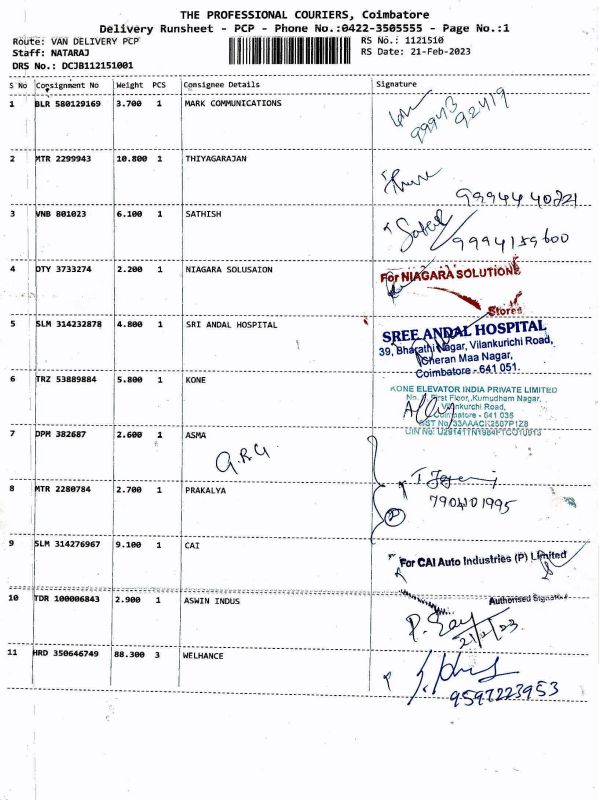 THE PROFESSIONAL COURIERS, Coimbatore
Delivery Runsheet - PCP - Phone No.:0422-3505555 - Page No.:1
Route: VAN DELIVERY PCP
RS No.: 1121510
Staff: NATARAJ
RS Date: 21-Feb-2023
DRS No.: DCJB112151001
S No Consignment No Weight PCS Consignee Details Signature
1 BLR 580129169 3.700 1 MARK COMMUNICATIONS
99943 92419
2 MTR 2299943 10.800 1 THIYAGARAJAN
3 VNB 801023 6.100 1 SATHISH
9994159600
4 DTY 3733274 2.200 1 NIAGARA SOLUSAION
For NIAGARA SOLUTIONS
Stores
5 SLM 314232878 4.800 1 SRI ANDAL HOSPITAL
SREE ANDAL HOSPITAL
39, Bharathi Nagar, Vilankurichi Road,
Cheran Maa Nagar,
Coimbatore - 641 051.
6 TRZ 53889884 5.800 1 KONE
KONE ELEVATOR INDIA PRIVATE LIMITED
First Floor, Kumudham Nagar,
Vilankurchi Road,
Coimbatore - 641 035
7 DPM 382687 2.600 1 ASMA
G.R.G.
8 MTR 2280784 2.700 1 PRAKALYA
2
9 SLM 314276967 9.100 1 CAI
For CAI Auto Industries (P) Limited
Authorised Signatory
10 TDR 100006843 2.900 1 ASWIN INDUS
21/2/23
11 HRD 350646749 88.300 3 WELHANCE
9597223953